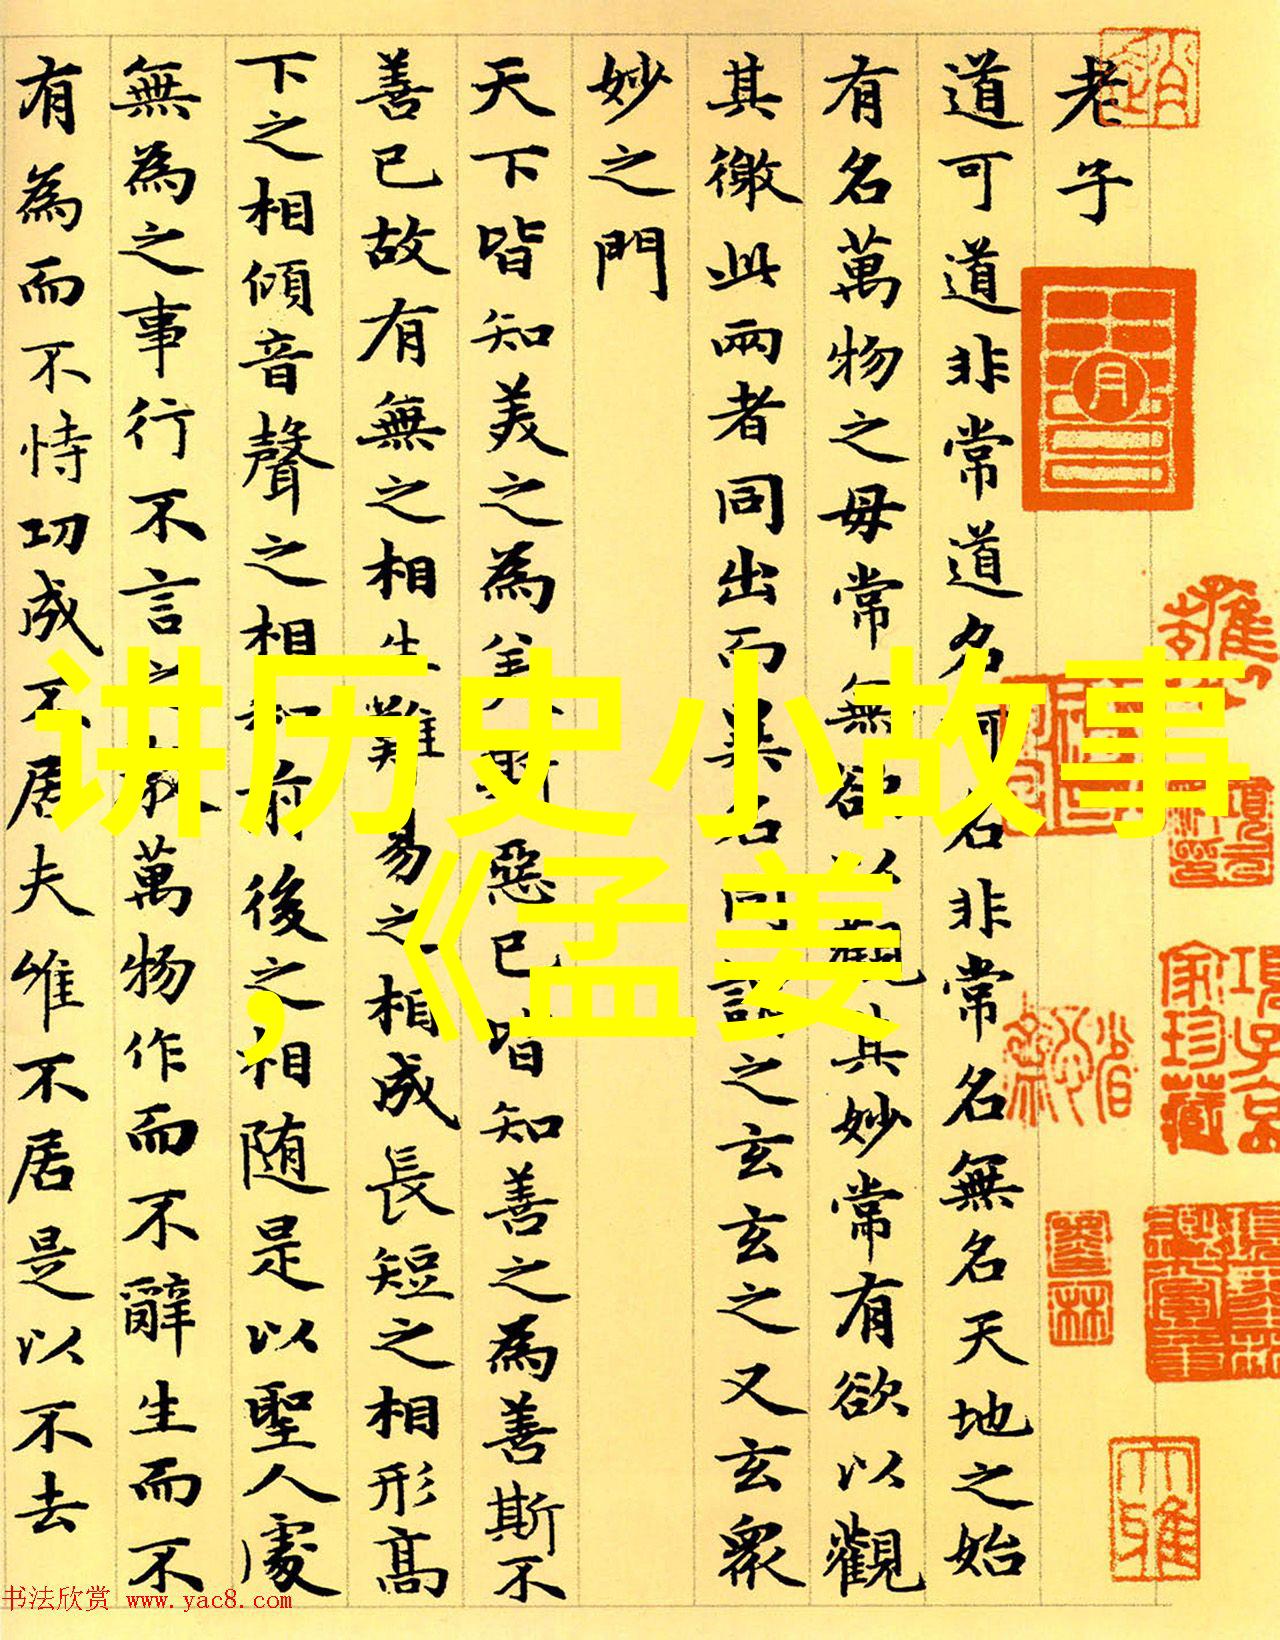 老子
道可道非常道名可名非常名無名天地之始
有名萬物之母常無欲以觀其妙常有欲以觀
其徼此兩者同出而異名同謂之玄玄之又玄衆
妙之門
天下皆知美之為美斯惡已皆知善之為善斯不
善已故有無之相生難易之相成長短之相形高
下之相傾音聲之相和前後之相随是以聖人處
無為之事行不言之教萬物作而不辭生而不
有為而不恃功成不居夫唯不居是以不去
讲历史小故事
，《孟姜
项子京
家珍藏
大雅
书法欣赏 www.yac8.com